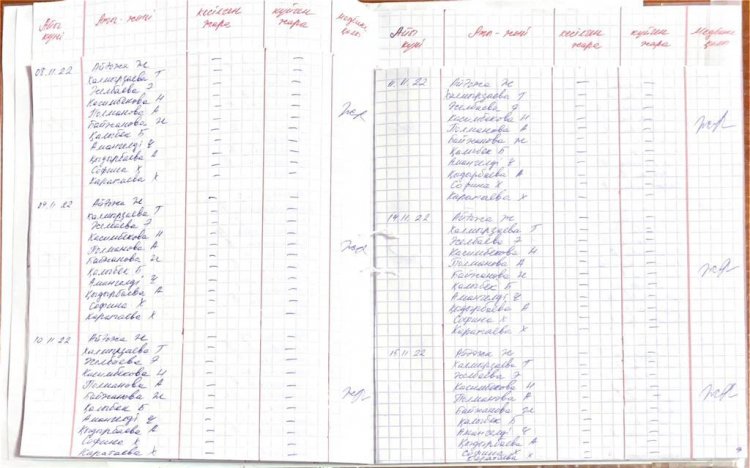 Айы күні Аты-жөні кесілген жара күйген жара Медбике қолы
08.11.22 Айтжа Ж
Калмырзаева Т
Жолбаева Э
Касимбекова Н
Полманова А
Байжанова Ж
Қалыбек Б
Амангелді Ұ
Қыдырбаева А
Софина Х
Каратаева Х
09.11.22 Айтжа Ж
Калмырзаева Т
Жолбаева Э
Касимбекова Н
Полманова А
Байжанова Ж
Қалыбек Б
Амангелді Ұ
Қыдырбаева А
Софина Х
Каратаева Х
10.11.22 Айтжа Ж
Калмырзаева Т
Жолбаева Э
Касимбекова Н
Полманова А
Байжанова Ж
Қалыбек Б
Амангелді Ұ
Қыдырбаева А
Софина Х
Каратаева Х
Айы күні Аты-жөні кесілген жара күйген жара Медбике қолы
11.11.22 Айтжа Ж
Калмырзаева Т
Жолбаева Э
Касимбекова Н
Полманова А
Байжанова Ж
Қалыбек Б
Амангелді Ұ
Қыдырбаева А
Софина Х
Каратаева Х
14.11.22 Айтжа Ж
Калмырзаева Т
Жолбаева Э
Касимбекова Н
Полманова А
Байжанова Ж
Қалыбек Б
Амангелді Ұ
Қыдырбаева А
Софина Х
Каратаева Х
15.11.22 Айтжа Ж
Калмырзаева Т
Жолбаева Э
Касимбекова Н
Полманова А
Байжанова Ж
Қалыбек Б
Амангелді Ұ
Қыдырбаева А
Софина Х
Каратаева Х